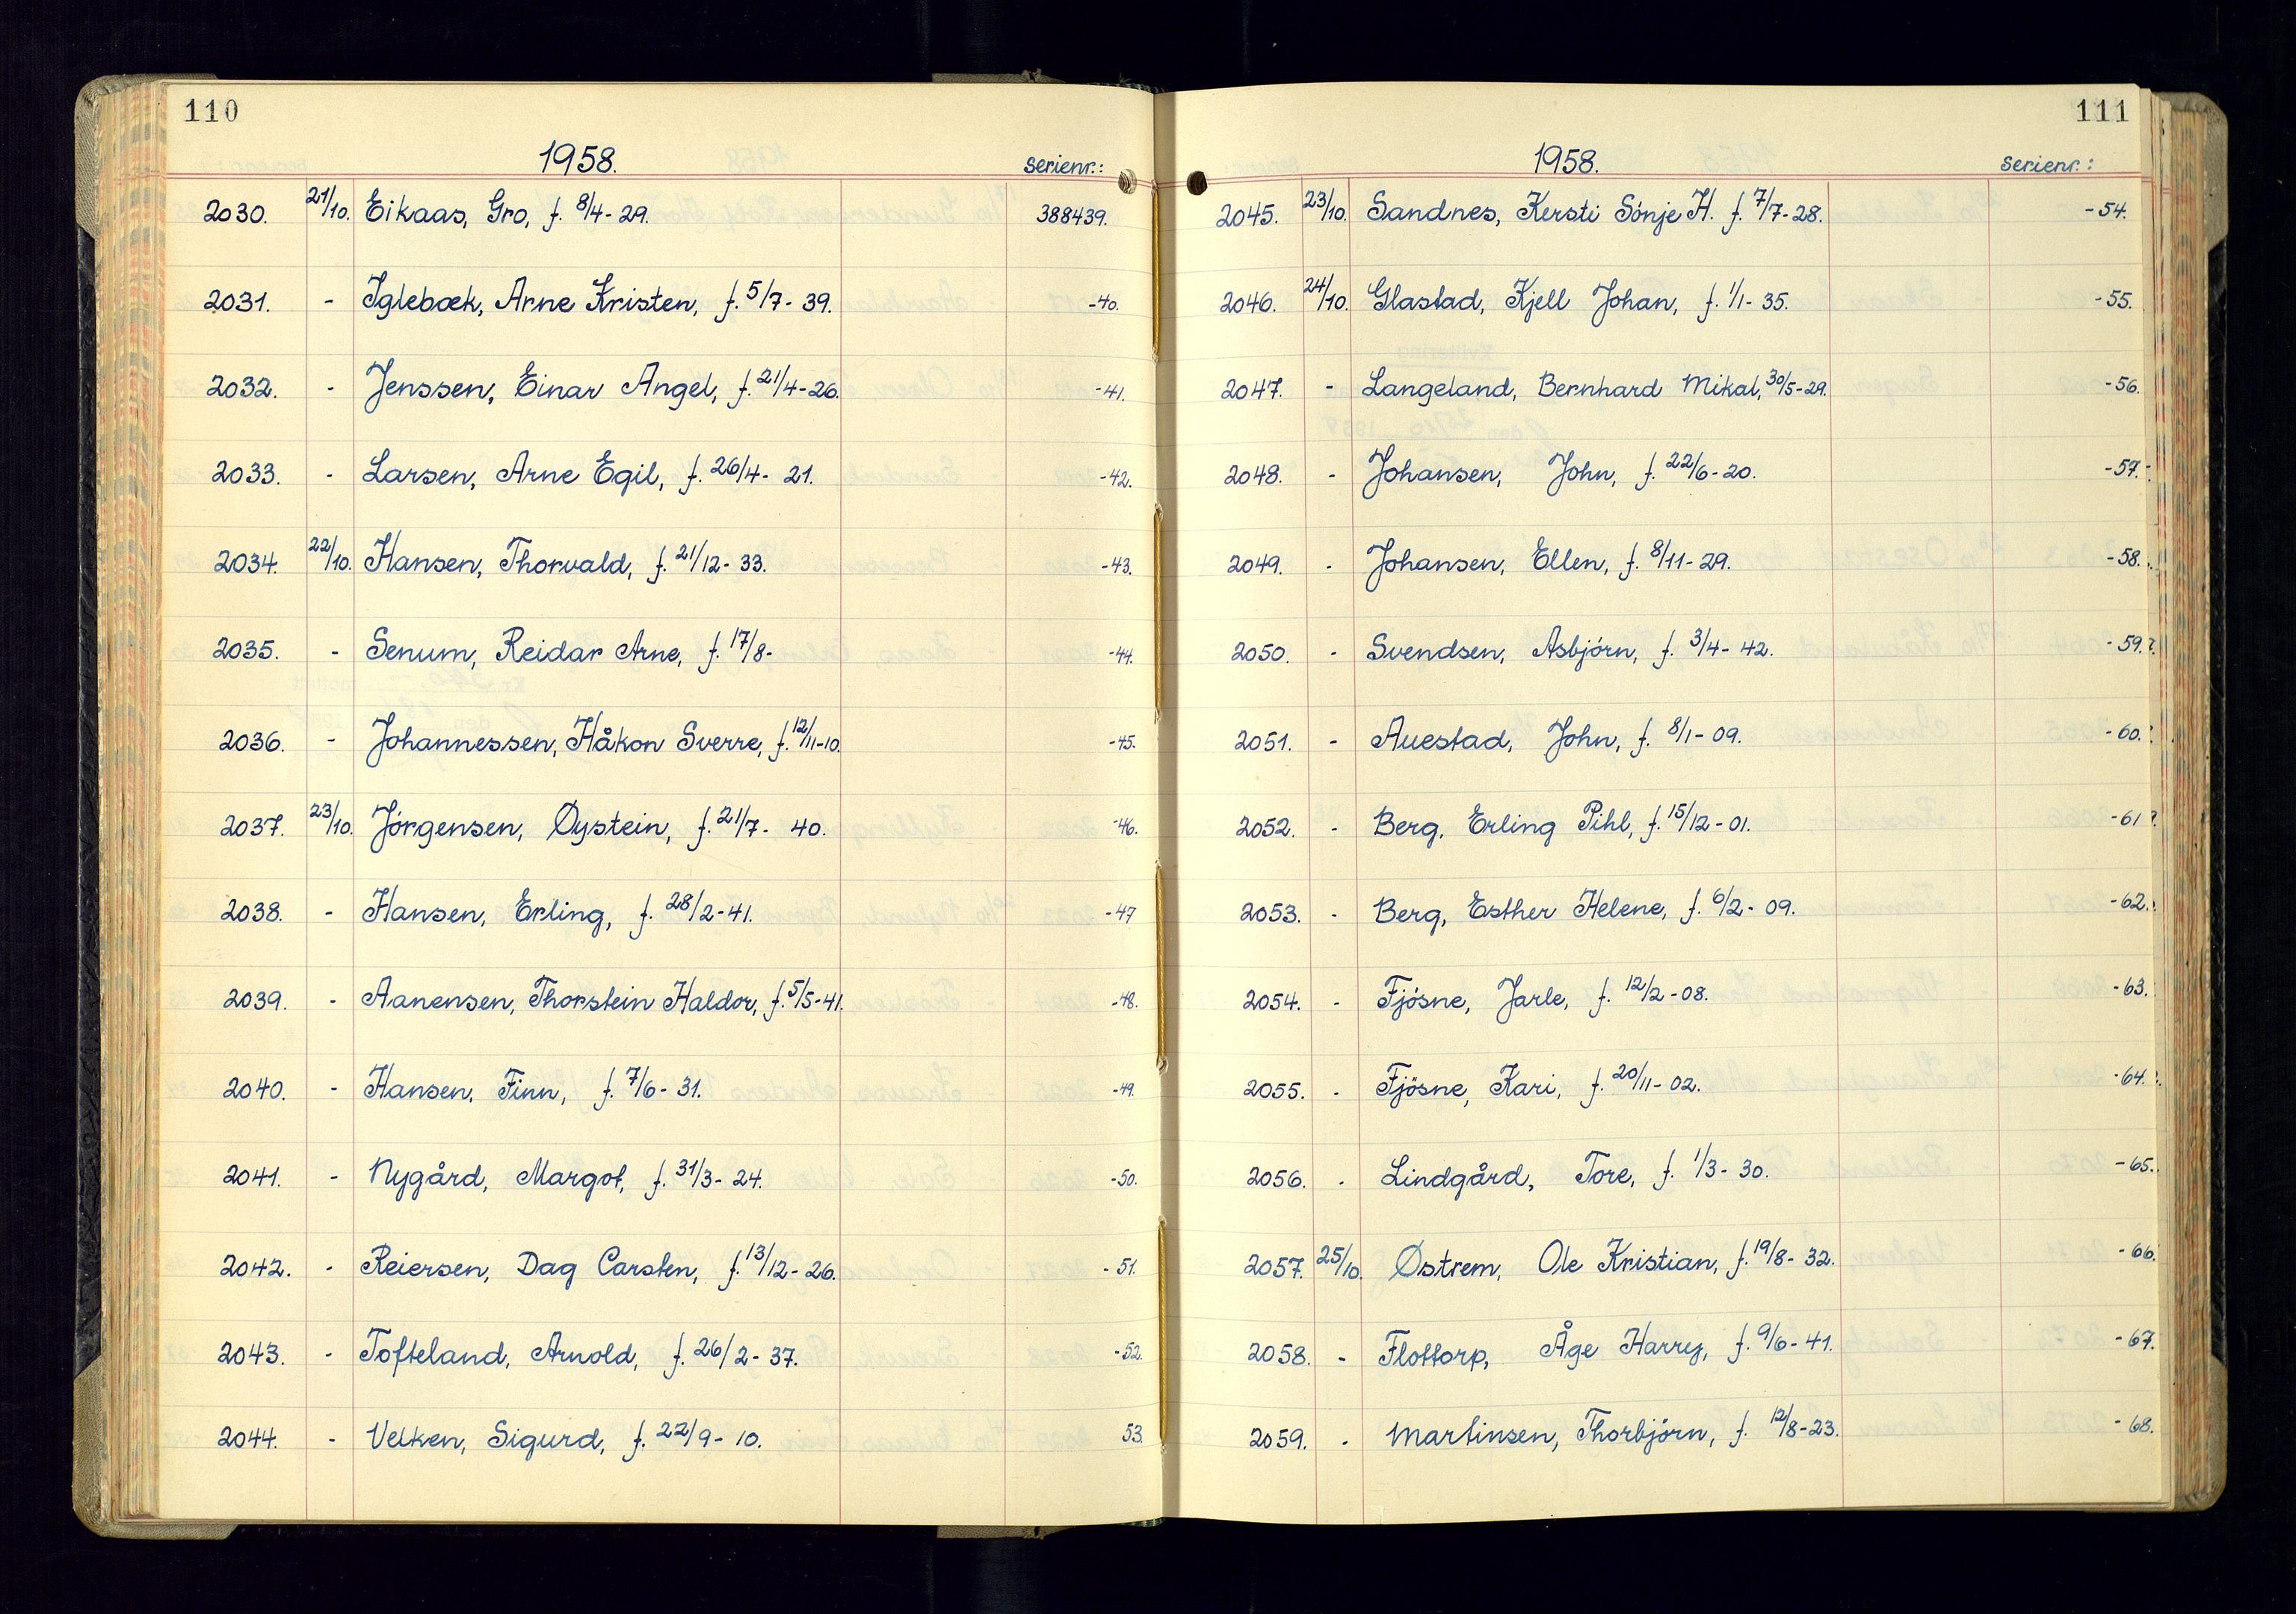 110
1958.
Serienr.:
2030. 21/10. Eikaas, Gro, f. 8/4-29. 388439.
2031. - Iglebæk, Arne Kristen, f. 5/7-39. -40.
2032. - Jenssen, Einar Angel, f. 21/4-26. -41.
2033. - Larsen, Arne Egil, f. 26/4-21. -42.
2034. 22/10. Hansen, Thorvald, f. 21/12-33. -43.
2035. - Senum, Reidar Arne, f. 17/8- -44.
2036. - Johannessen, Håkon Sverre, f. 12/11-10. -45.
2037. 23/10. Jörgensen, Øystein, f. 21/7-40. -46.
2038. - Hansen, Erling, f. 28/2-41. -47
2039. - Aanensen, Thorstein Haldor, f. 5/5-41. -48.
2040. - Hansen, Finn, f. 7/6-31. -49.
2041. - Nygård, Margot, f. 31/3-24. -50.
2042. - Reiersen, Dag Carsten, f. 13/12-26. -51.
2043. - Tofteland, Arnold, f. 26/2-37. -52.
2044. - Velken, Sigurd, f. 22/9-10. 53.
111
1958.
Serienr.:
2045. 23/10. Sandnes, Kersti Sönje H. f. 7/7-28. -54.
2046. 24/10. Glastad, Kjell Johan, f. 1/1-35. -55.
2047. - Langeland, Bernhard Mikal, 30/5-29. -56.
2048. - Johansen, John, f. 22/6-20. -57.
2049. - Johansen, Ellen, f. 8/11-29. -58.
2050. - Svendsen, Asbjörn, f. 3/4-42. -59.
2051. - Auestad, John, f. 8/1-09. -60.
2052. - Berg, Erling Pihl, f. 15/12-01. -61
2053. - Berg, Esther Helene, f. 6/2-09. -62.
2054. - Fjösne, Jarle, f. 12/2-08. -63.
2055. - Fjösne, Kari, f. 20/11-02. -64.
2056. - Lindgård, Tore, f. 1/3-30. -65.
2057. 25/10. Østrem, Ole Kristian, f. 19/8-32. -66.
2058. - Flottorp, Åge Harry, f. 9/6-41. -67.
2059. - Martinsen, Thorbjörn, f. 12/8-23. -68.